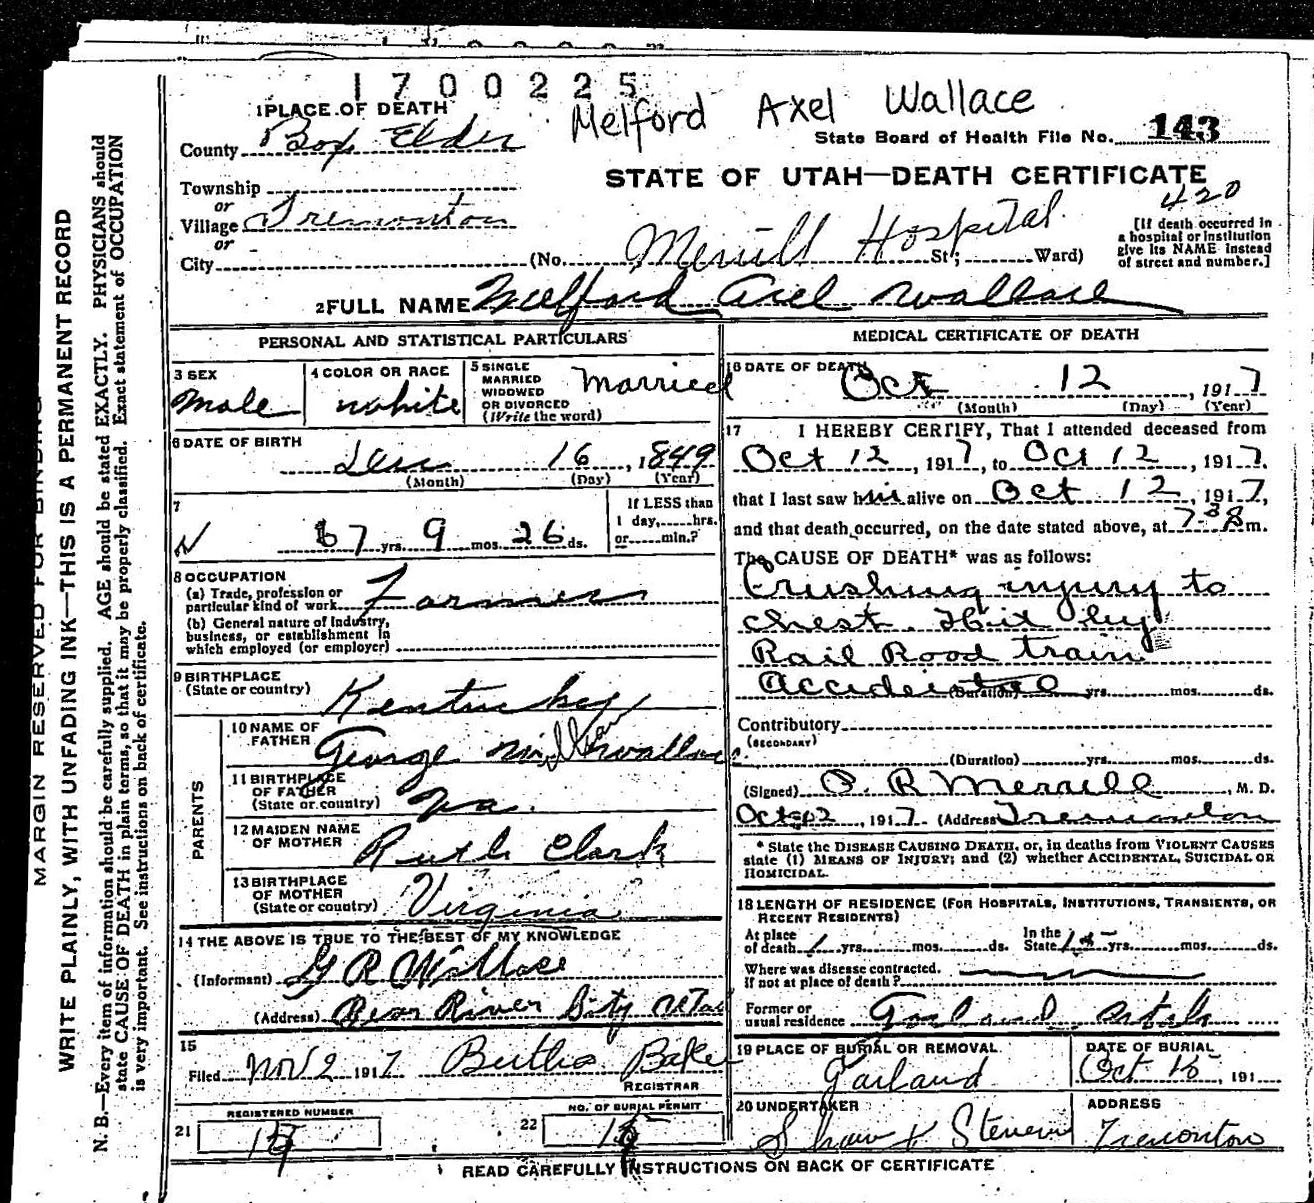 1700225
Melford Axel Wallace
1 PLACE OF DEATH
County Box Elder
State Board of Health File No. 143
STATE OF UTAH—DEATH CERTIFICATE
420
Township
or
Village Tremonton
or
City (No. Merrill Hospital St; Ward)
[If death occurred in
a hospital or institution
give its NAME instead
of street and number.]
2 FULL NAME Melford Axel Wallace
PERSONAL AND STATISTICAL PARTICULARS
3 SEX
Male
4 COLOR OR RACE
white
5 SINGLE
MARRIED
WIDOWED
OR DIVORCED
(Write the word)
Married
6 DATE OF BIRTH
16, 1849
(Month) (Day) (Year)
7
67 yrs. 9 mos. 26 ds.
If LESS than
1 day, hrs.
or min.?
8 OCCUPATION
(a) Trade, profession or
particular kind of work Farmer
(b) General nature of Industry,
business, or establishment in
which employed (or employer)
9 BIRTHPLACE
(State or country)
Kentucky
PARENTS
10 NAME OF
FATHER
George William Wallace
11 BIRTHPLACE
OF FATHER
(State or country)
Va.
12 MAIDEN NAME
OF MOTHER
Ruth Clark
13 BIRTHPLACE
OF MOTHER
(State or country)
Virginia
14 THE ABOVE IS TRUE TO THE BEST OF MY KNOWLEDGE
(Informant) G R Wallace
(Address) Bear River City Utah
15
Filed Nov 2 1917 Bertha Baker
REGISTRAR
REGISTERED NUMBER
21
NO. OF BURIAL PERMIT
22
MEDICAL CERTIFICATE OF DEATH
16 DATE OF DEATH
Oct 12, 1917
(Month) (Day) (Year)
17 I HEREBY CERTIFY, That I attended deceased from
Oct 12, 1917, to Oct 12, 1917,
that I last saw him alive on Oct 12, 1917,
and that death occurred, on the date stated above, at m.
The CAUSE OF DEATH* was as follows:
Crushing injury to
chest. Hit by
Rail Rood train
Accidental (Duration) yrs. mos. ds.
Contributory
(SECONDARY)
(Duration) yrs. mos. ds.
(Signed) P. R Merrill, M. D.
Oct 12, 1917. (Address Tremonton
* State the DISEASE CAUSING DEATH, or, in deaths from VIOLENT CAUSES
state (1) MEANS OF INJURY; and (2) whether ACCIDENTAL, SUICIDAL OR
HOMICIDAL.
18 LENGTH OF RESIDENCE (FOR HOSPITALS, INSTITUTIONS, TRANSIENTS, OR
RECENT RESIDENTS)
At place
of death 1 yrs. mos. ds.
In the
State 15 yrs. mos. ds.
Where was disease contracted.
If not at place of death?
Former or
usual residence Garland Utah
19 PLACE OF BURIAL OR REMOVAL
Garland
DATE OF BURIAL
Oct 15, 191
20 UNDERTAKER
Shaw & Stevens
ADDRESS
Tremonton
READ CAREFULLY INSTRUCTIONS ON BACK OF CERTIFICATE
MARGIN RESERVED FOR BINDING
WRITE PLAINLY, WITH UNFADING INK—THIS IS A PERMANENT RECORD
N. B.—Every item of information should be carefully supplied. AGE should be stated EXACTLY. PHYSICIANS should
state CAUSE OF DEATH in plain terms, so that it may be properly classified. Exact statement of OCCUPATION
is very important. See instructions on back of certificate.